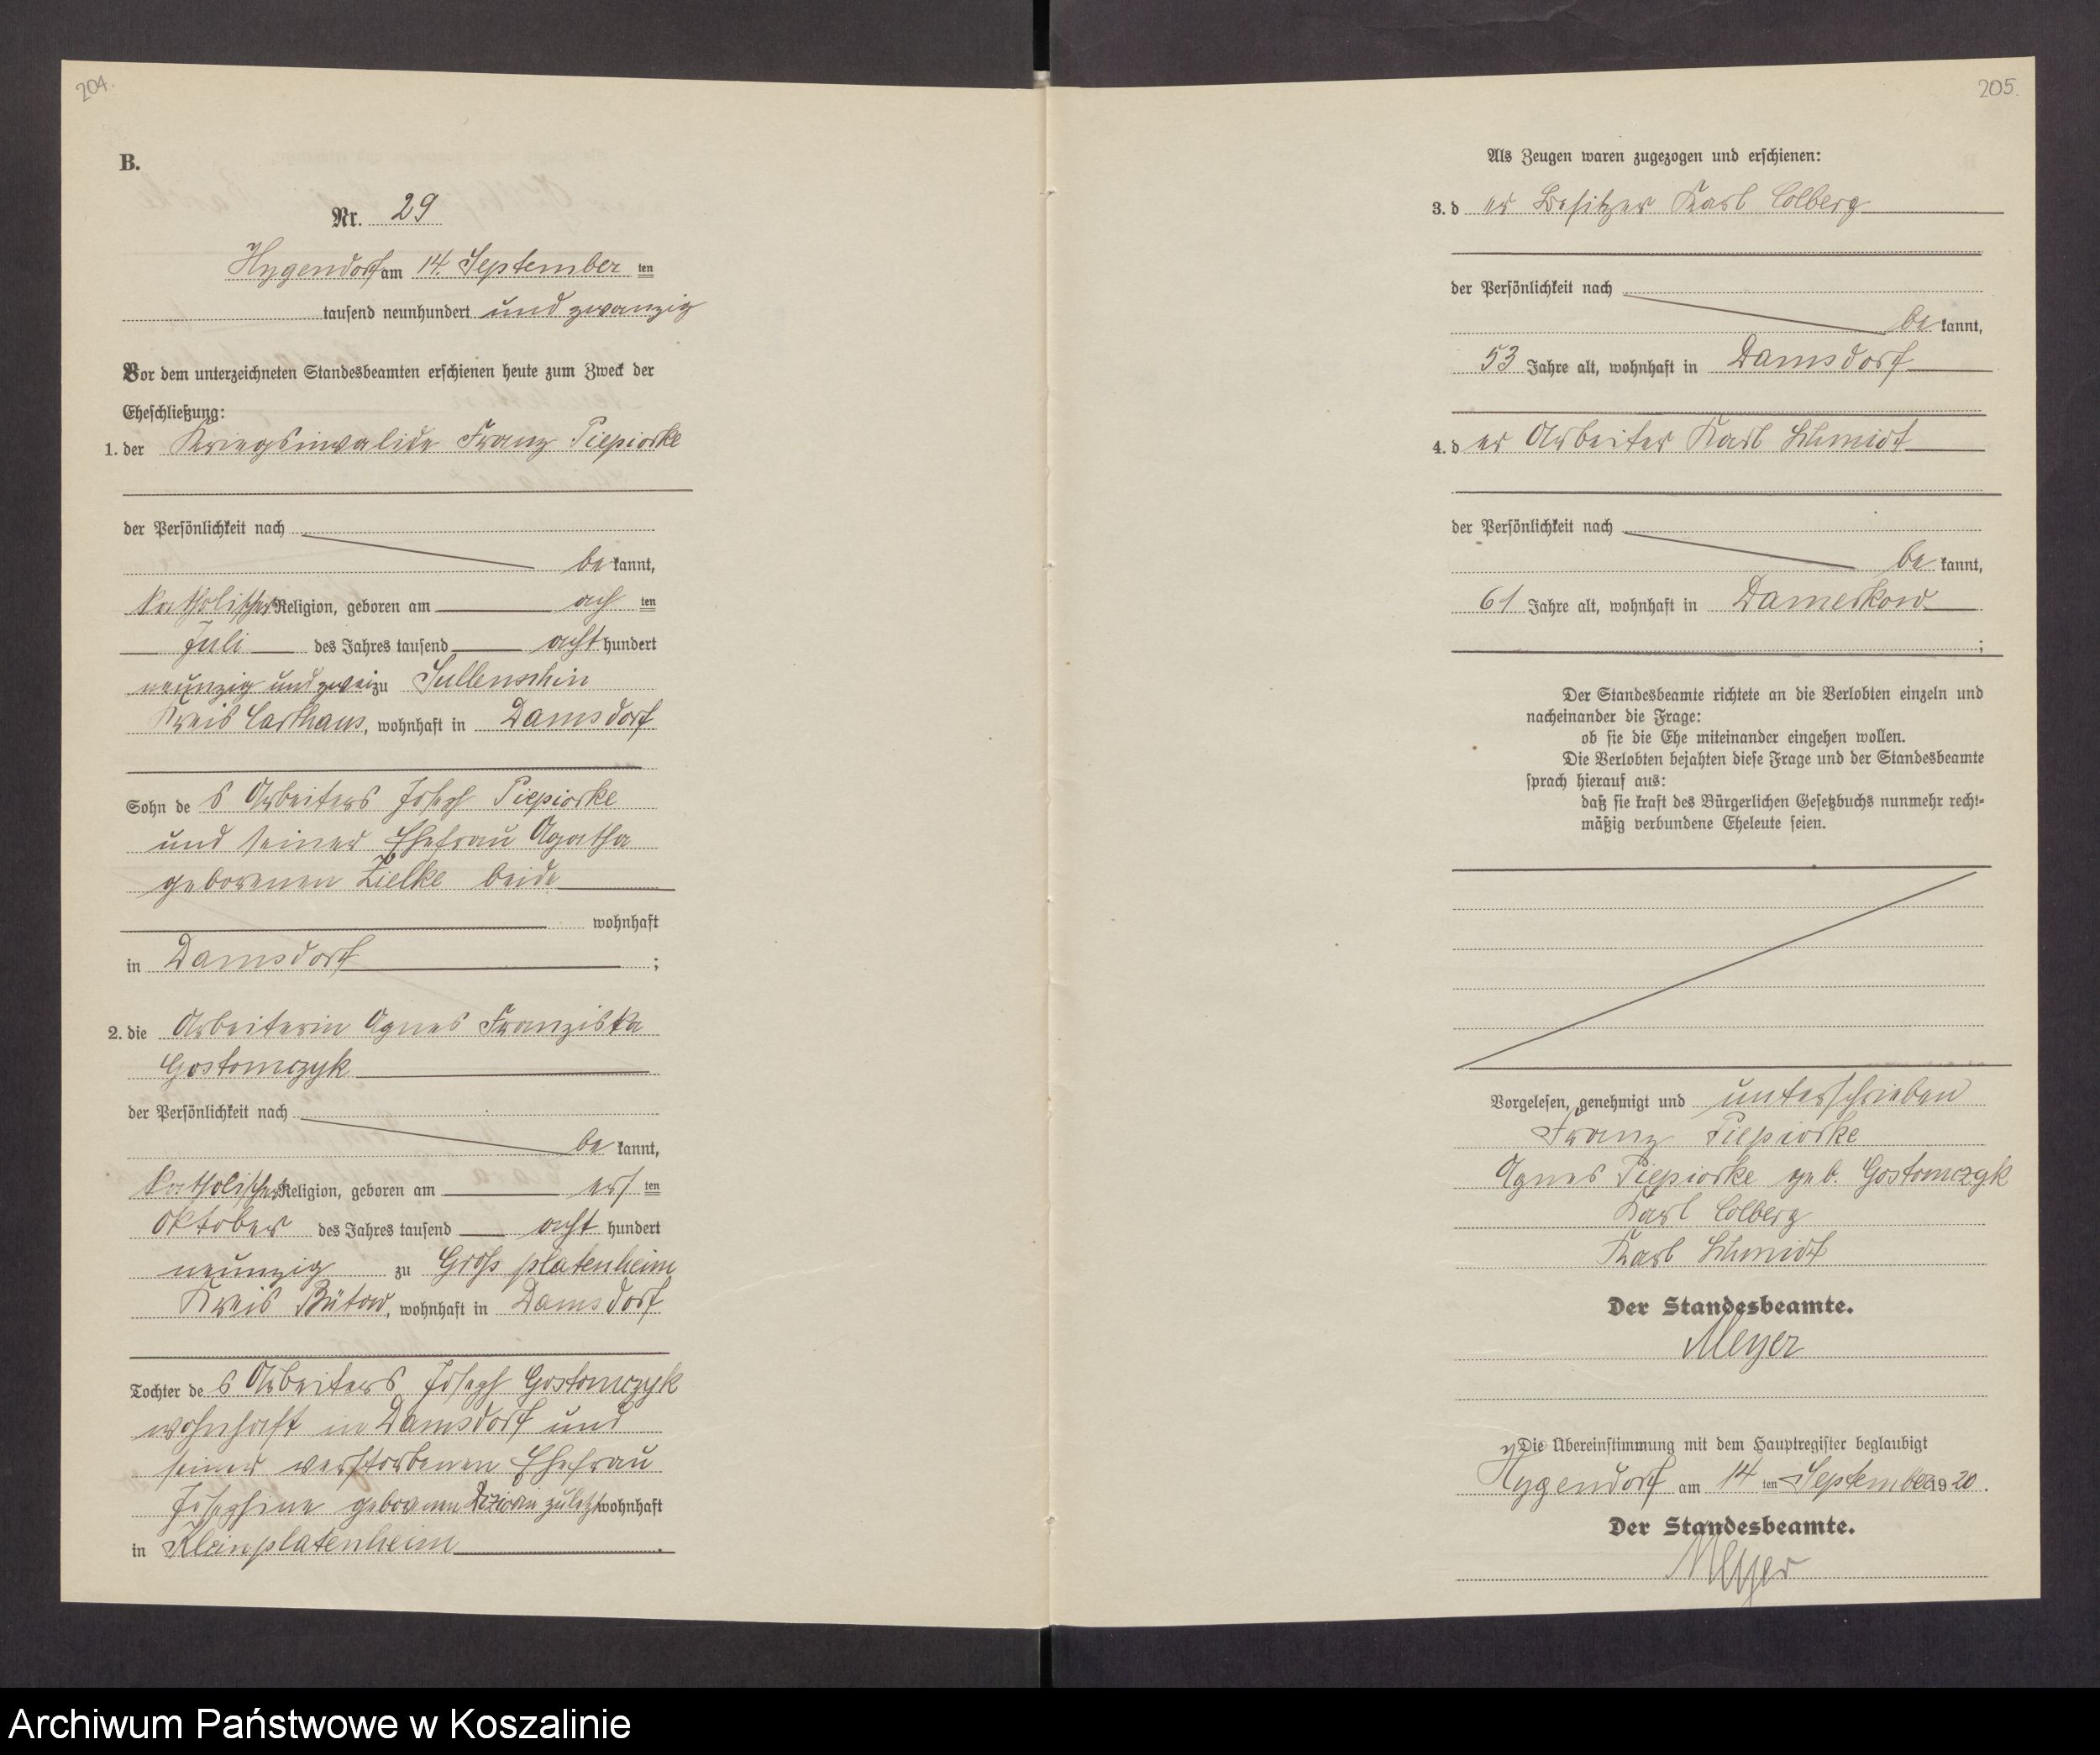 204.
B.
Nr. 29
Hygendorf am 14. September ten
tausend neunhundert und zwanzig
Vor dem unterzeichneten Standesbeamten erschienen heute zum Zweck der
Eheschließung:
1. der Kriegsinvalide Franz Piepiorke
der Persönlichkeit nach
be kannt,
katholischer Religion, geboren am ach ten
Juli des Jahres tausend acht hundert
neunzig und zwei zu Sullenschin
Kreis Carthaus, wohnhaft in Damsdorf
Sohn de s Arbeiters Joseph Piepiorke
und seiner Ehefrau Agatha
geborenen Zielke beide
wohnhaft
in Damsdorf ;
2. die Arbeiterin Agnes Franziska
Gostomczyk
der Persönlichkeit nach
be kannt,
katholischer Religion, geboren am ers ten
Oktober des Jahres tausend acht hundert
neunzig zu Groß platenheim
Kreis Bütow, wohnhaft in Damsdorf
Tochter de s Arbeiters Joseph Gostomczyk
wohnhaft in Damsdorf und
seiner verstorbenen Ehefrau
Josephine geborenen zuletzt wohnhaft
in Kleinplatenheim .
205.
Als Zeugen waren zugezogen und erschienen:
3. d er Besitzer Karl Colberg
der Persönlichkeit nach
be kannt,
53 Jahre alt, wohnhaft in Damsdorf
4. d er Arbeiter Karl Schmidt
der Persönlichkeit nach
be kannt,
61 Jahre alt, wohnhaft in Damerkow
;
Der Standesbeamte richtete an die Verlobten einzeln und
nacheinander die Frage:
ob sie die Ehe miteinander eingehen wollen.
Die Verlobten bejahten diese Frage und der Standesbeamte
sprach hierauf aus:
daß sie kraft des Bürgerlichen Gesetzbuchs nunmehr recht-
mäßig verbundene Eheleute seien.
Vorgelesen, genehmigt und unterschrieben
Franz Piepiorke
Agnes Piepiorke geb. Gostomczyk
Karl Colberg
Karl Schmidt
Der Standesbeamte.
Meyer
Die Übereinstimmung mit dem Hauptregister beglaubigt
Hygendorf am 14 ten September 1920.
Der Standesbeamte.
Meyer
Archiwum Państwowe w Koszalinie